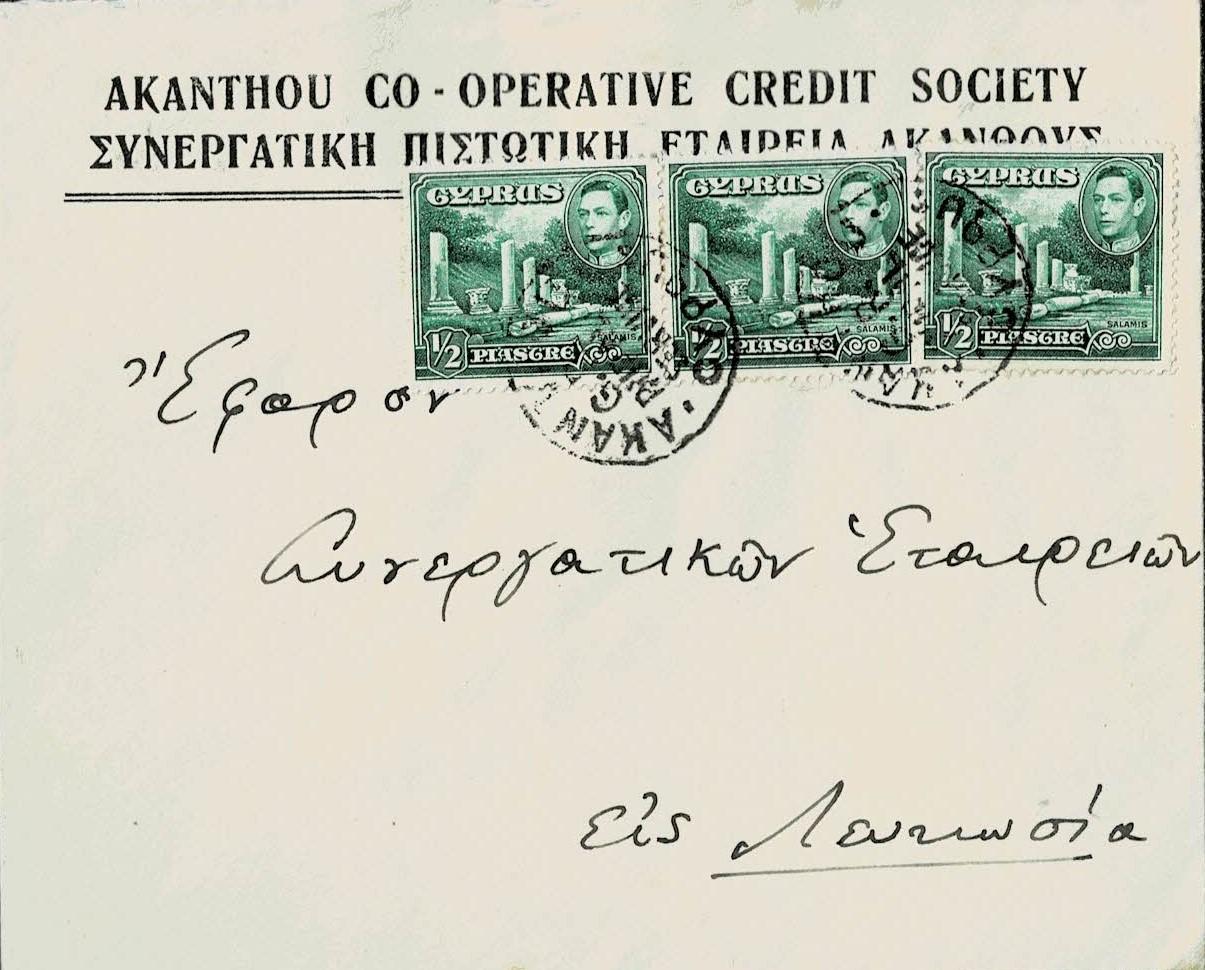 AKANTHOU CO-OPERATIVE CREDIT SOCIETY
ΣΥΝΕΡΓΑΤΙΚΗ ΠΙΣΤΩΤΙΚΗ ΕΤΑΙΡΕΙΑ ΑΚΑΝΘΟΥΣ
CYPRUS CYPRUS CYPRUS
SALAMIS SALAMIS SALAMIS
1/2 PIASTRE 1/2 PIASTRE 1/2 PIASTRE
Ἔφορον
Συνεργατικῶν Ἑταιρειῶν
Εἰς Λευκωσία